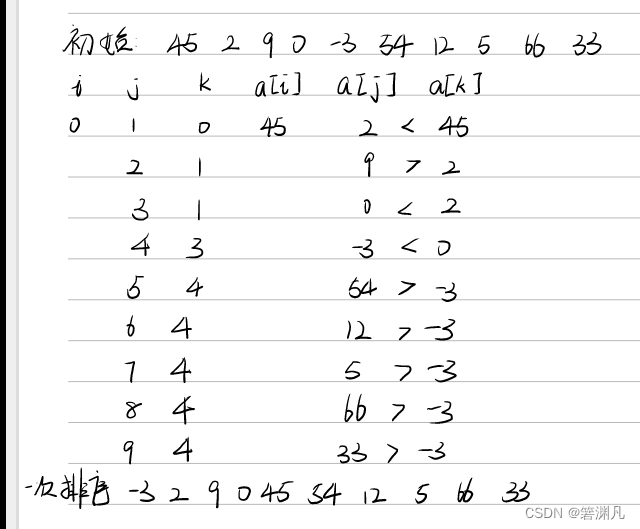 初始: 45 2 9 0 -3 54 12 5 66 33
i j k a[i] a[j] a[k]
0 1 0 45 2 < 45
2 1 9 > 2
3 1 0 < 2
4 3 -3 < 0
5 4 54 > -3
6 4 12 > -3
7 4 5 > -3
8 4 66 > -3
9 4 33 > -3
一次排序 -3 2 9 0 45 54 12 5 66 33
CSDN @箬渊凡